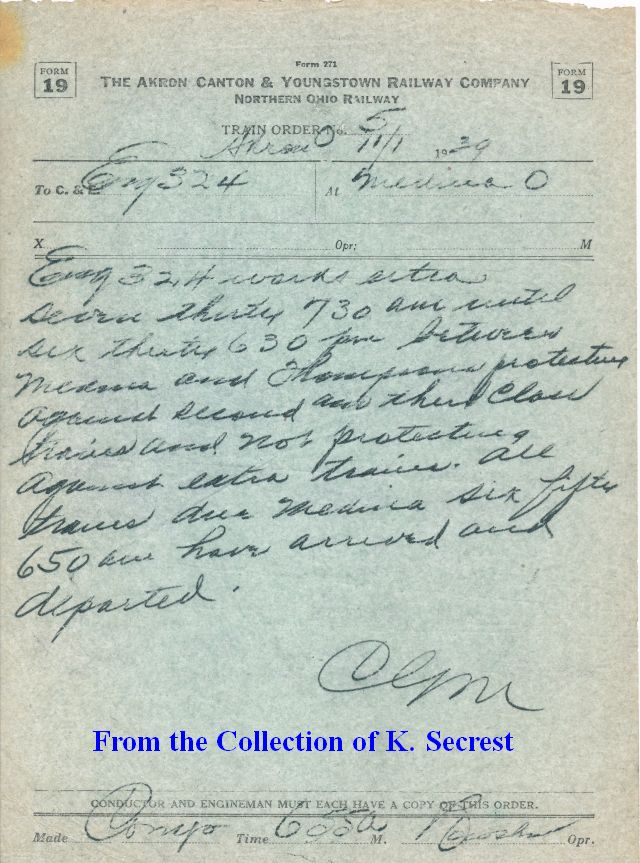 Form 271
FORM 19
THE AKRON CANTON & YOUNGSTOWN RAILWAY COMPANY
NORTHERN OHIO RAILWAY
FORM 19
TRAIN ORDER No. 5
Akron O 11/1 1939
To C. & E. Eng 324 At Medina O
X Opr; M
Eng 324 works extra
seven thirty 730 am until
six thirty 630 pm between
Medina and Thompsons protecting
against second and third class
trains and not protecting
against extra trains. all
trains due Medina six fifty
650 am have arrived and
departed.
From the Collection of K. Secrest
CONDUCTOR AND ENGINEMAN MUST EACH HAVE A COPY OF THIS ORDER.
Made Time 655a M. Opr.